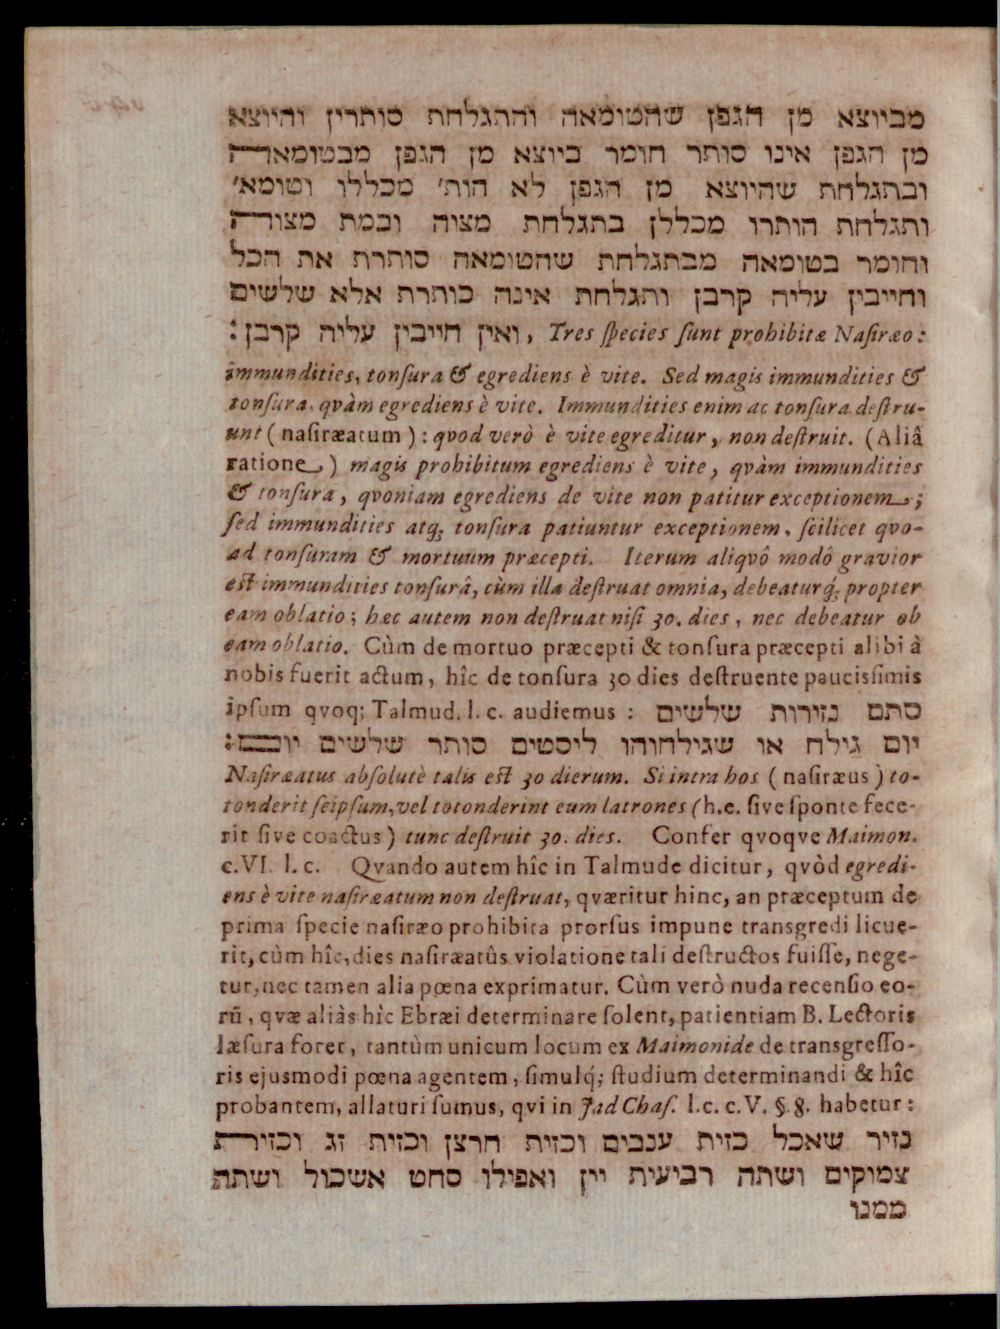 מביוצא מן הגפן שהטומאה וההגלחת סותרין והיוצא
מן הגפן אינו סותר חומר ביוצא מן הגפן מבטומאה
ובתגלחת שהיוצא מן הגפן לא הות׳ מכללו וטומא׳
ותגלחת הותרו מכללן בתגלחת מצוה ובמת מצורה
וחומר בטומאה מבתגלחת שהטומאה סותרת את הכל
וחייבין עליה קרבן ותגלחת אינה כותרת אלא שלשים
ואין חייבין עליה קרבן : , Tres ſpecies ſunt prohibitæ Naſiræo:
immundities, tonſura & egrediens è vite. Sed magis immundities &
tonſura, qvàm egrediens è vite. Immundities enim ac tonſura deſtru-
unt (naſiræatum): qvod verò è vite egreditur, non deſtruit. (Aliâ
ratione) magis prohibitum egrediens è vite, qvàm immundities
& tonſura, qvoniam egrediens de vite non patitur exceptionem;
ſed immundities atq; tonſura patiuntur exceptionem, ſcilicet qvo-
ad tonſuram & mortuum præcepti. Iterum aliqvô modô gravior
eſt immundities tonſurâ, cùm illa deſtruat omnia, debeaturq́; propter
eam oblatio; hæc autem non deſtruat niſi 30. dies, nec debeatur ob
eam oblatio. Cùm de mortuo præcepti & tonſura præcepti alibi à
nobis fuerit actum, hîc de tonſura 30 dies deſtruente pauciſſimis
ipſum qvoq; Talmud. l. c. audiemus : סתם נזירות שלשים
יום גילח או שגילחוהו ליסטים סותר שלשים יום :
Naſiræatus abſolutè talis eſt 30 dierum. Si intra hos (naſiræus) to-
tonderit ſeipſum, vel totonderint eum latrones (h.e. ſive ſponte fece-
rit ſive coactus) tunc deſtruit 30. dies. Confer qvoqve Maimon.
c. VI. l. c. Qvando autem hîc in Talmude dicitur, qvòd egredi-
ens è vite naſiræatum non deſtruat, qværitur hinc, an præceptum de
prima ſpecie naſiræo prohibita prorſus impune transgredi licue-
rit, cùm hîc, dies naſiræatûs violatione tali deſtructos fuiſſe, nege-
tur, nec tamen alia pœna exprimatur. Cùm verò nuda recenſio eo-
rū, qvæ aliàs hîc Ebræi determinare ſolent, patientiam B. Lectoris
læſura foret, tantùm unicum locum ex Maimonide de transgreſſo-
ris ejusmodi pœna agentem, ſimulq́; ſtudium determinandi & hîc
probantem, allaturi ſumus, qvi in Jad Chaſ. l.c. c. V. §. 8. habetur:
נזיר שאכל כזית ענבים וכזית חרצן וכזית זג וכזית
צמוקים ושתה רביעית יין ואפילו סחט אשכול ושתה
ממנו